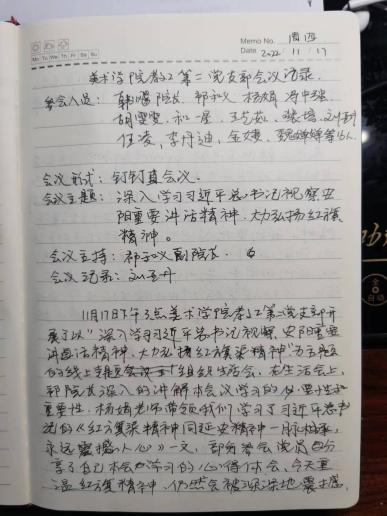 Memo No. 周四
Mo Tu We Th Fr Sa Su
Date 2022 / 11 / 17
美术学院教工第二党支部会议记录
参会人员: 韩 院长 郭和义 杨娟
胡雯雯 和 王艺茹 张
任凌, 李丹迪, 金 魏婵婵等16人
会议形式: 钉钉直会议.
会议主题: 深入学习习近平总书记视察安
阳重要讲话精神. 大力弘扬红旗渠
精神。
会议主持: 郭和义副院长.
会议记录: 刘
11月17日下午3点美术学院教工第二党支部开
展了以“深入学习习近平总书记视察安阳重要
讲话精神, 大力弘扬红旗渠精神”为主题
的线上 组织生活会, 在生活会上,
郭院长深入的讲解本会议学习的必要性和
重要性. 杨娟老师带领我们学习了习近平总书
记的《红旗渠精神同延安精神一脉相承,
永远震撼人心》一文, 部分参会党员也分
享了自己本会学习的心得体会, 今天重
温红旗渠精神, 仍然会被深深地震撼,